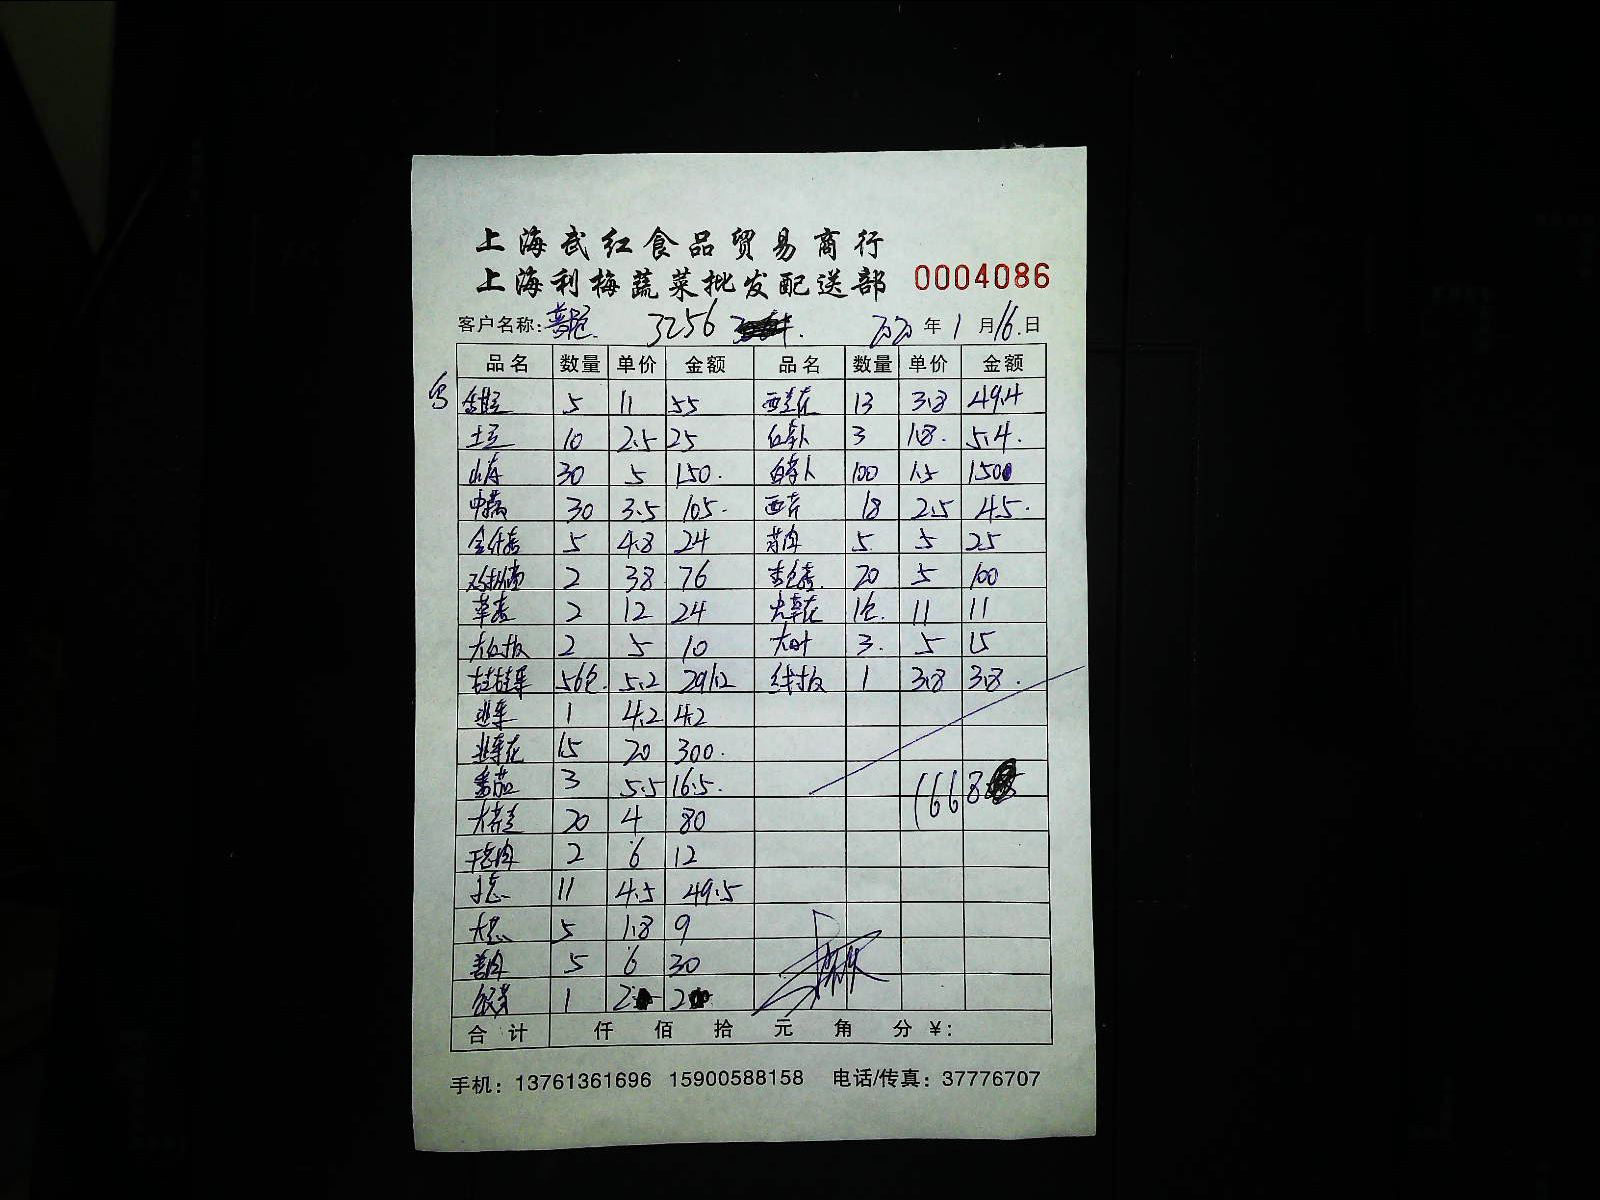 上海武红食品贸易商行
上海利梅蔬菜批发配送部 0004086
客户名称: 3256 2020 年 1 月 16. 日
品名 数量 单价 金额 品名 数量 单价 金额
5 11 55 西兰花 13 3.8 49.4
土豆 10 2.5 25 红萝卜 3 1.8. 5.4.
30 5 150. 白萝卜 100 1.5 150
30 3.5 105. 西芹 18 2.5 45.
金针菇 5 4.8 24 5. 5 25
2 38 76 杏鲍菇. 20 5 100
草菇 2 12 24 虫草花 1包. 11 11
大红椒 2 5 10 大叶 3. 5 15
娃娃菜 56包. 5.2 291.2 线椒 1 3.8 3.8.
韭菜 1 4.2 4.2
韭菜花 15 20 300.
番茄 3 5.5 16.5.
20 4 80 1668
2 6 12
11 4.5 49.5
大葱 5 1.8 9
姜肉 5 6 30
银芽 1 2 2
合计 仟 佰 拾 元 角 分 ¥:
手机: 13761361696 15900588158 电话/传真: 37776707